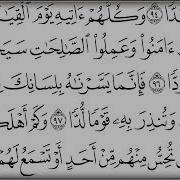 دًّا ٩٤ وَكُلُّهُمْ ءَاتِيهِ يَوْمَ ٱلْقِيَـ
ءَامَنُوا۟ وَعَمِلُوا۟ ٱلصَّـٰلِحَـٰتِ سَيَجـ
دًّا ٩٦ فَإِنَّمَا يَسَّرْنَـٰهُ بِلِسَانِكَ
وَتُنذِرَ بِهِۦ قَوْمًا لُّدًّا ٩٧ وَكَمْ أَهْلَكـ
تُحِسُّ مِنْهُم مِّنْ أَحَدٍ أَوْ تَسْمَعُ لَهُمْ